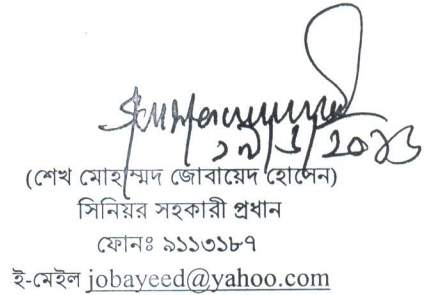 (শেখ মোহাম্মদ জোবায়েদ হোসেন)
সিনিয়র সহকারী প্রধান
ফোনঃ ৯১১৩১৮৭
ই-মেইল jobayeed@yahoo.com